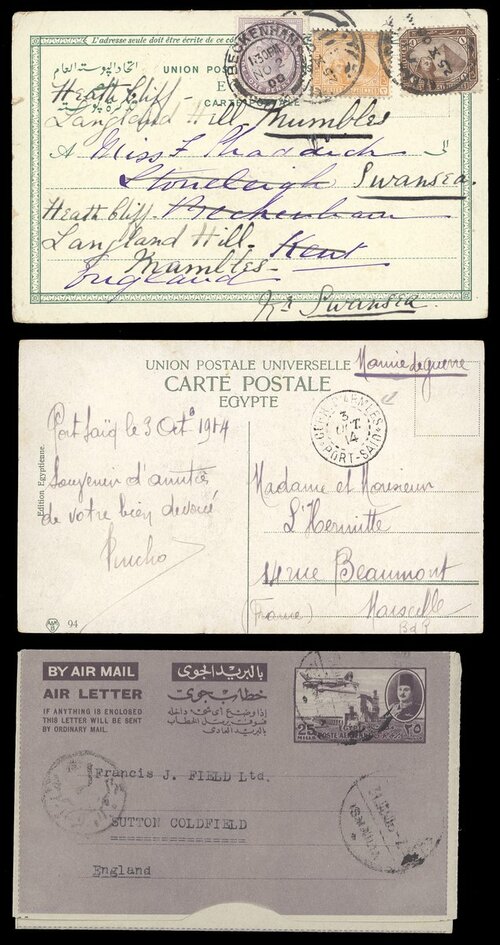 L'adresse seule doit être écrite de ce
UNION POS
CARTE POSTALE
BECKENHAM
1.30 PM
NO 2
09
Heath Cliff
Langland Hill Mumbles
A Miss F Chaddich
Stoneleigh Swansea
Heath Cliff Beckenham
Langland Hill. Kent
Mumbles
England
Nr Swansea
UNION POSTALE UNIVERSELLE
Marine de guerre
CARTE POSTALE
EGYPTE
PORT-SAID
3
OCT.
14
Port Saïd le 3 Oct 1914
Souvenir d'amitié
de votre bien dévoué
Pincho
Edition Egyptienne.
Madame et Monsieur
L'Hermitte
14 rue Beaumont
(France) Marseille
BdR
94
BY AIR MAIL
AIR LETTER
IF ANYTHING IS ENCLOSED
THIS LETTER WILL BE SENT
BY ORDINARY MAIL.
بالبريد الجوى
خطاب جوى
إذا وضع أى شىء داخله
بالبريد العادى
25
MILLS
POSTE AERIENNE
٢٥
Francis J. FIELD Ltd.
SUTTON COLDFIELD
England